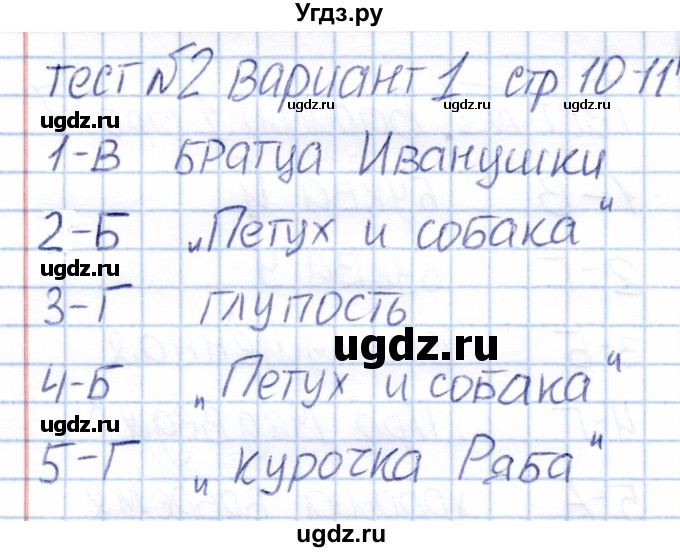 Угдз.ру
тест №2 вариант 1 стр 10-11
ugdz.ru ugdz.ru ugdz.ru
1-В братца Иванушки
2-Б „Петух и собака"
ugdz.ru
3-Г глупость
ugdz.ru
4-Б „Петух и собака"
ugdz.ru
5-Г „курочка Ряба"
ugdz.ru ugdz.ru